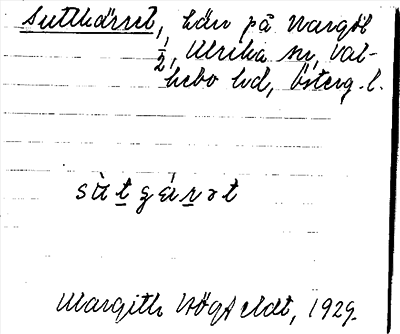 Suttkärret, kärr på Vargöl
1/2, Ulrika sn, Val-
kebo hd, Österg. l.
sùt̲ʒár̲ət
Margith Högfeldt, 1929.